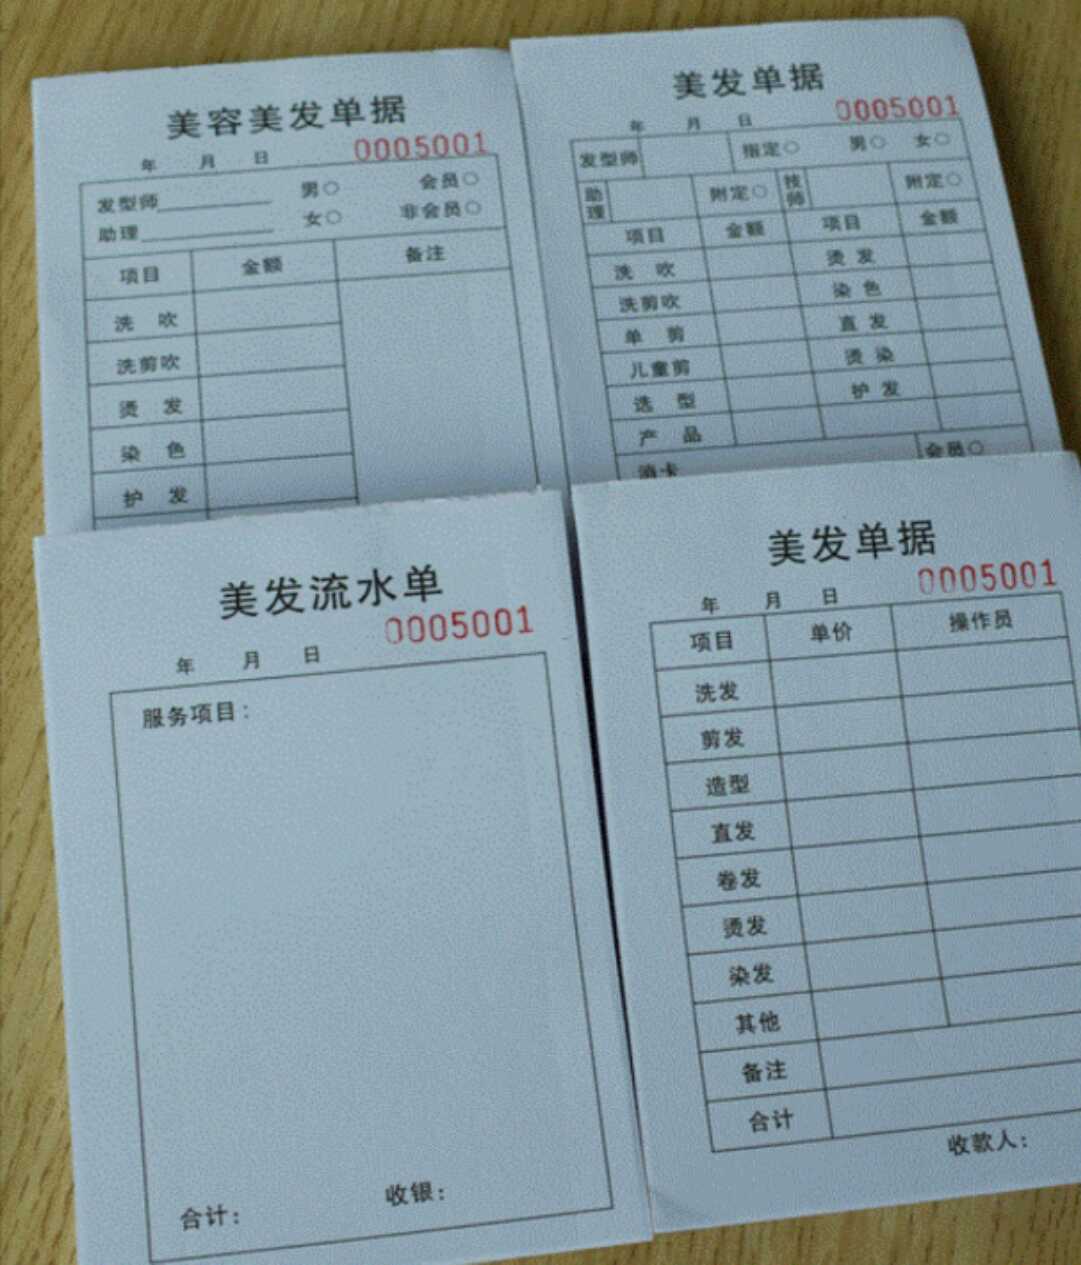 美容美发单据
0005001
年 月 日
发型师 男○ 会员○
助理 女○ 非会员○
项目 金额 备注
洗 吹
洗剪吹
烫 发
染 色
护 发
美发单据
0005001
年 月 日
发型师 指定○ 男○ 女○
助理 附定○ 技师 附定○
项目 金额 项目 金额
洗 吹 烫 发
洗剪吹 染 色
单 剪 直 发
儿童剪 烫 染
选 型 护 发
产 品
消卡 会员○
美发流水单
0005001
年 月 日
服务项目:
合计: 收银:
美发单据
0005001
年 月 日
项目 单价 操作员
洗发
剪发
造型
直发
卷发
烫发
染发
其他
备注
合计
收款人: